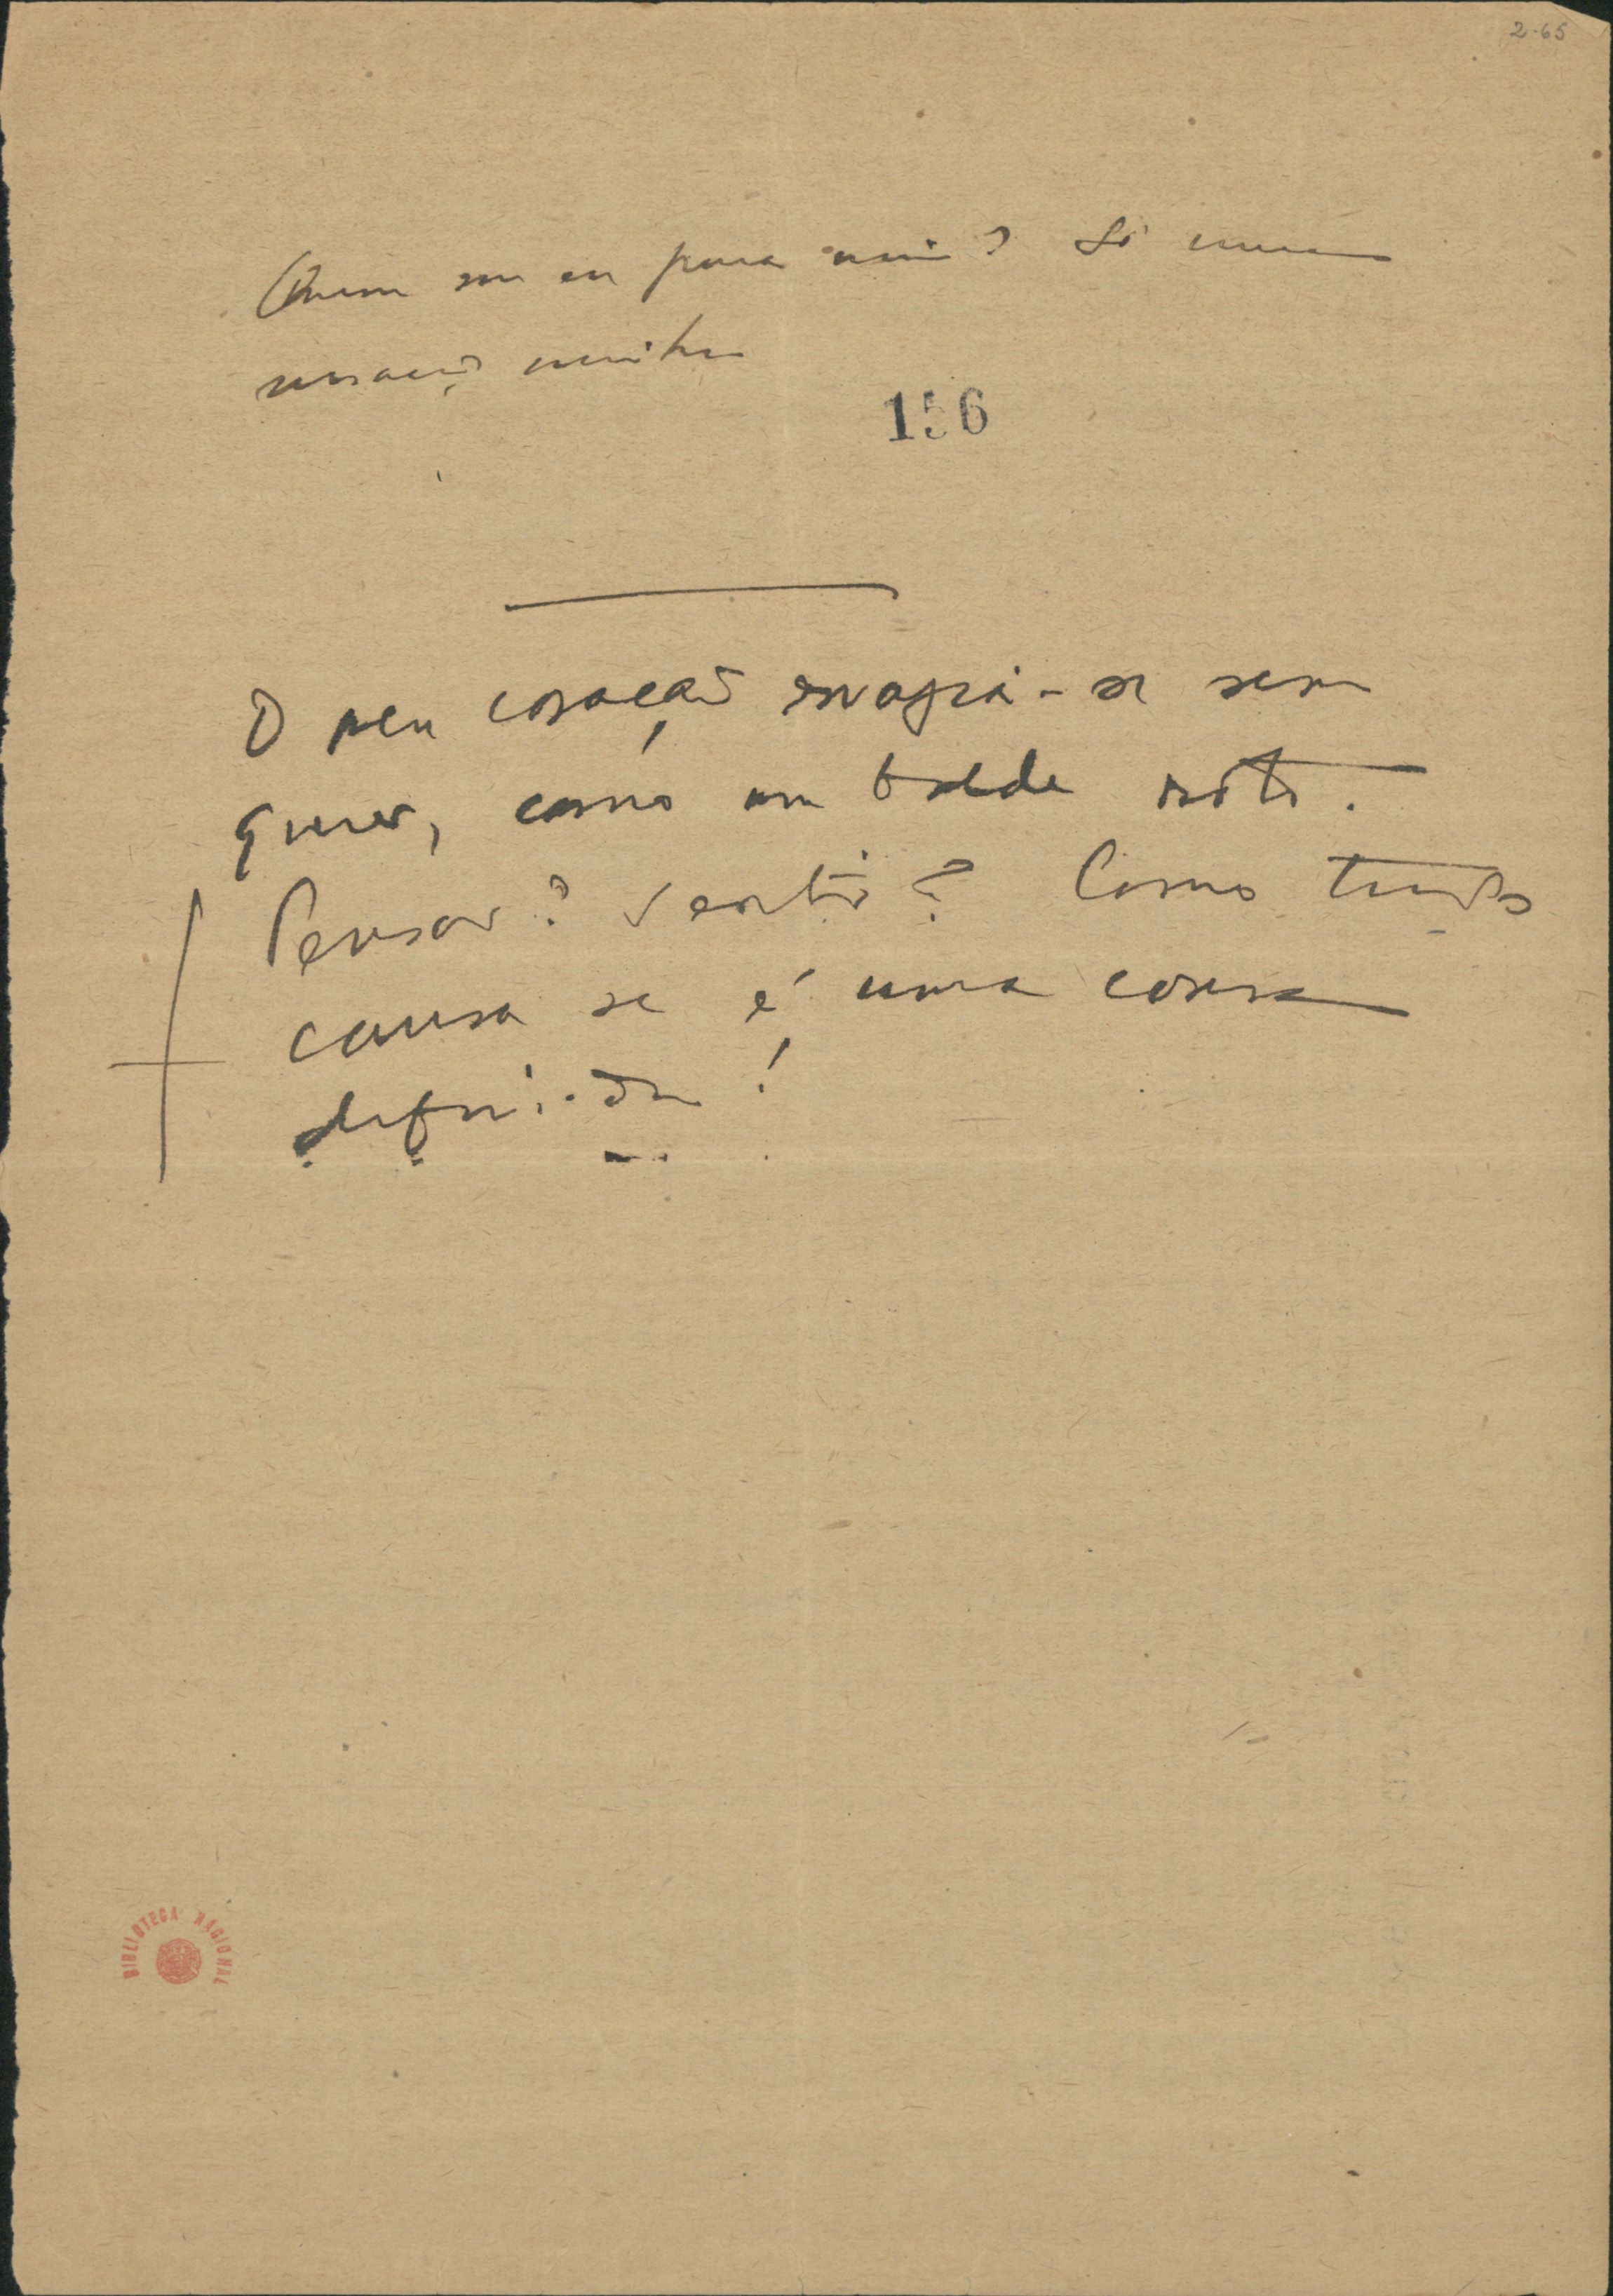 2-65
Quem sou eu para mim? Só uma
sensação minha
156
O meu coração esvazia-se sem
querer, como um balde roto.
Pensar? Sentir? Como tudo
cansa se é uma coisa
definida!
BIBLIOTECA NACIONAL